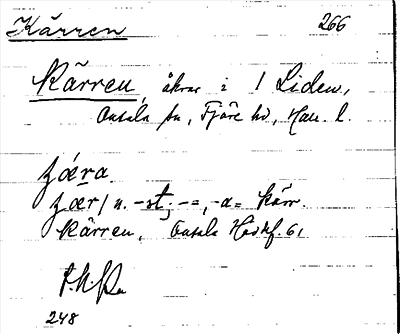 Kärren 266
Kärren, åkrar i 1 Liden,
Onsala sn, Fjäre hd, Hall. l.
kær/ n. -st; -=, -a = kärr.
Kärren, Onsala
248